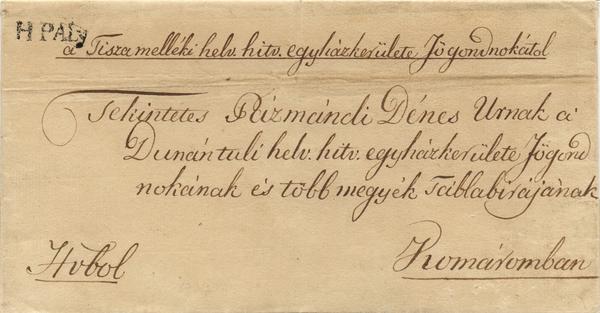 H PÁLY
a Tiszamelléki helv. hitv. egyházkerülete Jőgondnokátol
Tekintetes Pázmándi Dénes Urnak a
Dunántuli helv. hitv. egyházkerülete Jőgond
nokának és több megyék Táblabirájának
Hivbol
Komáromban